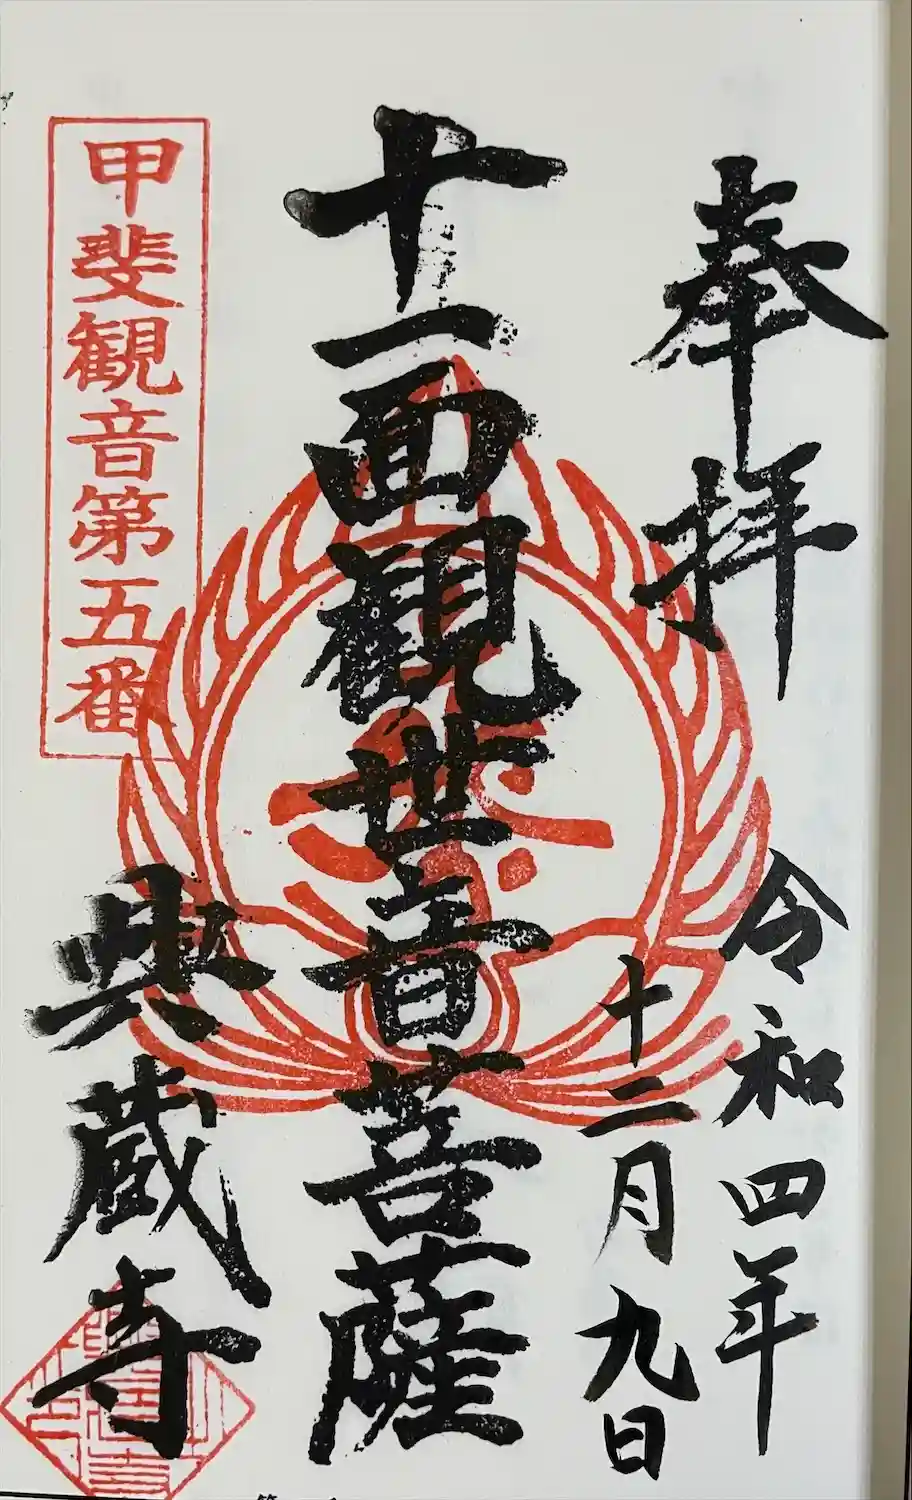 奉拝
令和四年
十二月九日
十一面観世音菩薩
興蔵寺
甲斐観音第五番